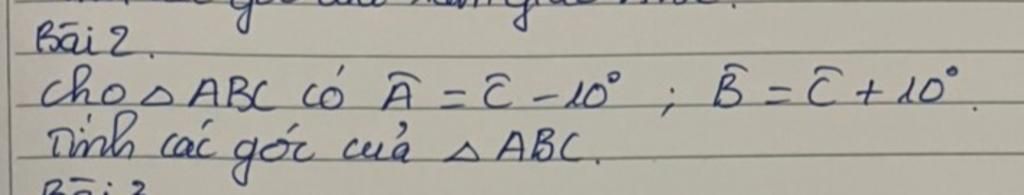 Bài 2.
Cho △ ABC có Â = Ĉ - 10° ; B̂ = Ĉ + 10°.
Tính các góc của △ ABC.
Bài 3